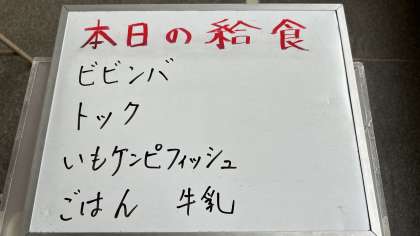 本日の給食
ビビンバ
トック
いもケンピフィッシュ
ごはん 牛乳